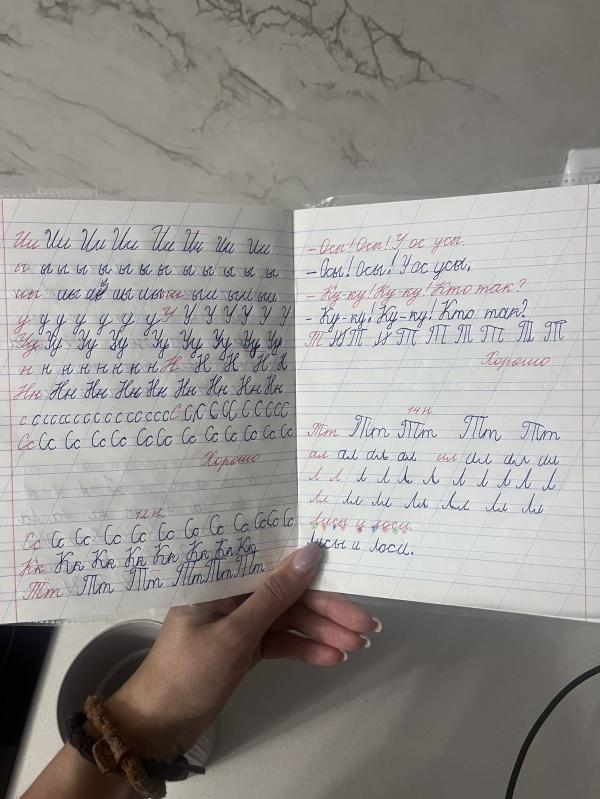 Ии Ии Ии Ии Ии Ии Ии Ии
ы ы ы ы ы ы ы ы ы ы ы ы ы
иы иы иы иы иы ыи ыи ыи ыи
у у у у у у у У У У У У У У
Уу Уу Уу Уу Уу Уу Уу Уу Уу
н н н н н н н н Н Н Н Н Н
Нн Нн Нн Нн Нн Нн Нн Нн Нн
с с с с с с с с с с с с с с С С С С С С С С С
Сс Сс Сс Сс Сс Сс Сс Сс Сс Сс Сс Сс
Хорошо
12 н
Сс Сс Сс Сс Сс Сс Сс Сс Сс Сс Сс
Кк Кк Кк Кк Кк Кк Кк Кк
Тт Тт Тт Тт Тт Тт
- Осы! Осы! У ос усы.
- Осы! Осы! У ос усы.
- Ку-ку! Ку-ку! Кто там?
- Ку-ку! Ку-ку! Кто там?
Т Т Т Т Т Т Т Т Т Т
Хорошо
14 н
Тт Тт Тт Тт Тт
ал ал ал ал ил ил ил ил
л л л л л л л л л л л
Лл Лл Лл Лл Лл Лл Лл
Лисы и лоси.
Лисы и лоси.